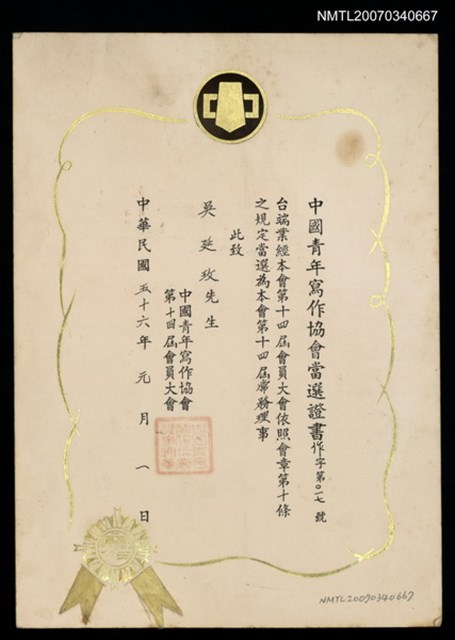 NMTL20070340667
中國青年寫作協會當選證書作字第〇一七號
台端業經本會第十四屆會員大會依照會章第十條
之規定當選為本會第十四屆常務理事
此致
吳延玫先生
中國青年寫作協會
第十四屆會員大會
中華民國五十六年元月一日
NMTL20070340667